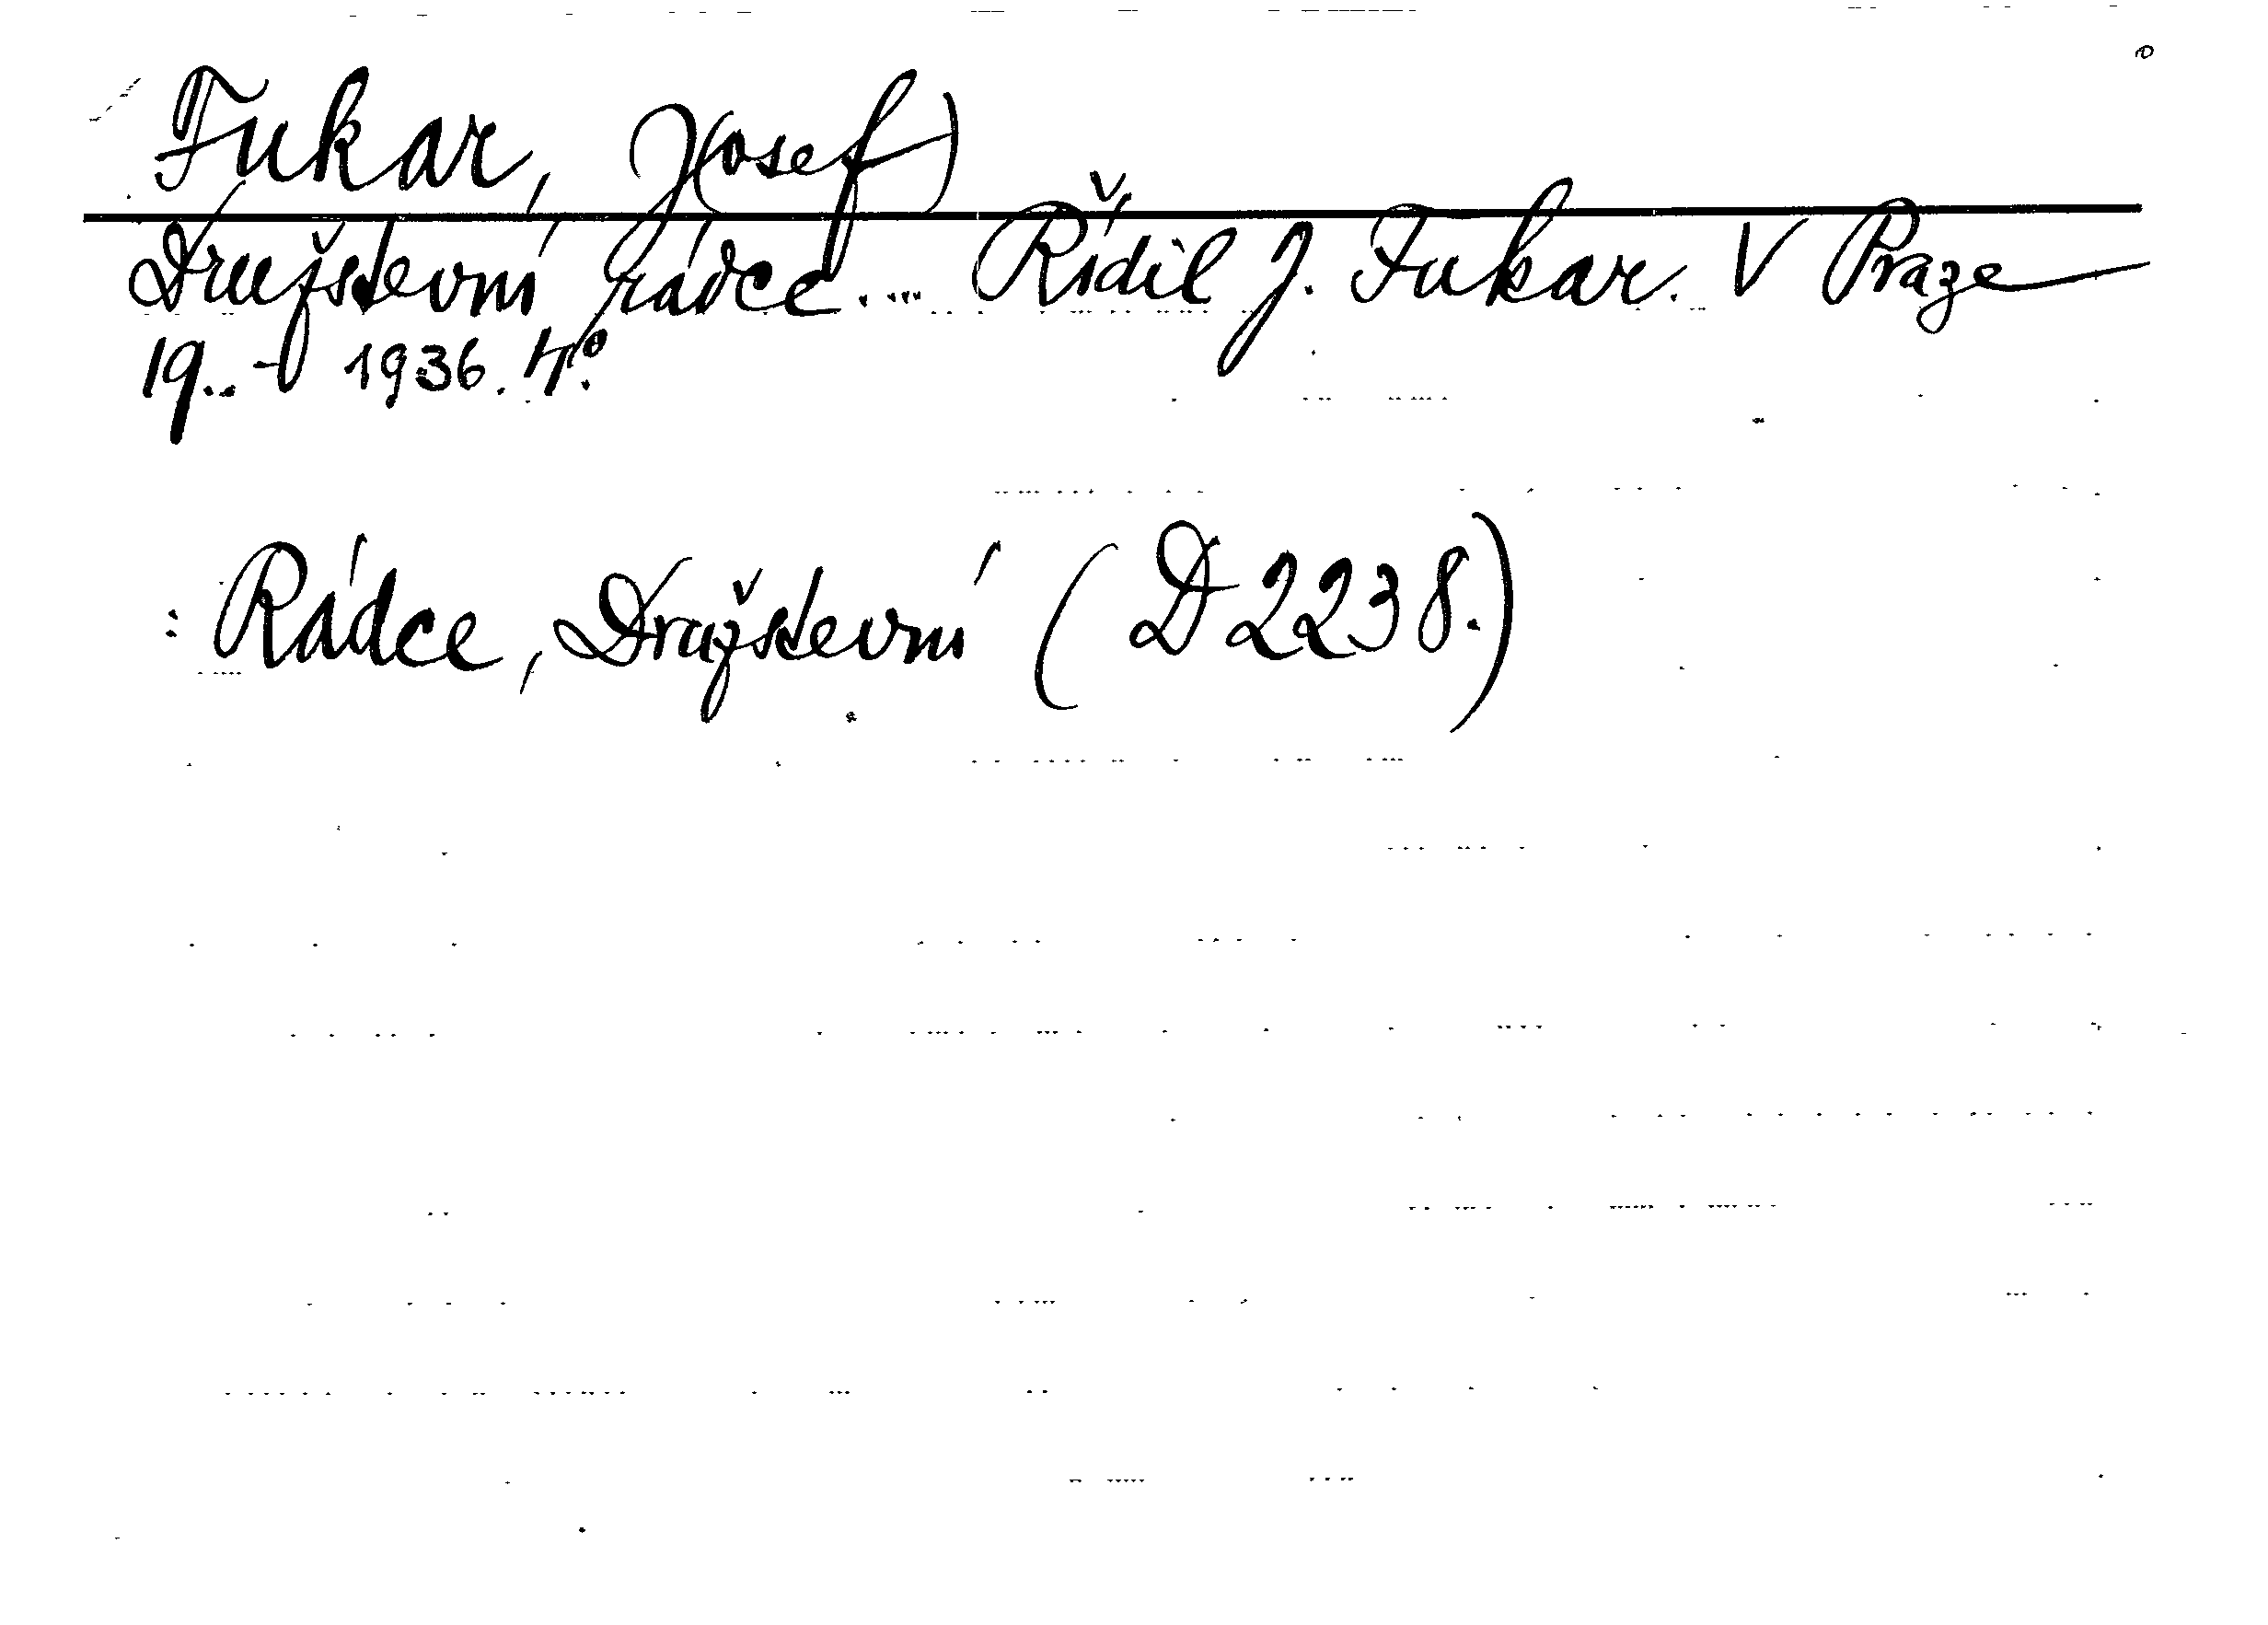 Fukar, J(osef)
Družstevní rádce. ... Řídil J. Fukar. V Praze
19..- 1936. 4°.
: Rádce, Družstevní (D 2238.)